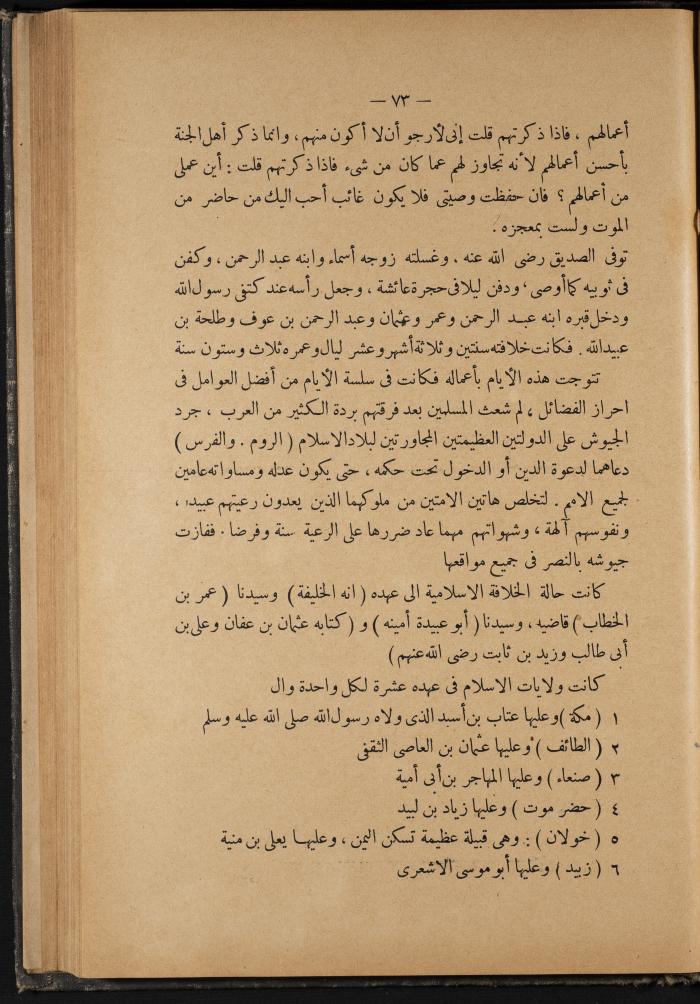 — ٧٣ —
أعمالهم ، فاذا ذكرتهم قلت إنى لأرجو أن لا أكون منهم ، وانما ذكر أهل الجنة
بأحسن أعمالهم لأنه تجاوز لهم عما كان من شىء فاذا ذكرتهم قلت : أين عملى
من أعمالهم ؟ فان حفظت وصيتى فلا يكون غائب أحب اليك من حاضر من
الموت ولست بمعجزه .
توفى الصديق رضى الله عنه . وغسلته زوجه أسماء وابنه عبد الرحمن ، وكفن
فى ثوبيه كما أوصى ، ودفن ليلا فى حجرة عائشة ، وجعل رأسه عند كتفى رسول الله
ودخل قبره ابنه عبد الرحمن وعمر وعثمان وعبد الرحمن بن عوف وطلحة بن
عبيد الله . فكانت خلافته سنتين وثلاثة أشهر وعشر ليال وعمره ثلاث وستون سنة
تتوجت هذه الأيام بأعماله فكانت فى سلسة الأيام من أفضل العوامل فى
احراز الفضائل ، لم شعث المسلمين بعد فرقتهم بردة الكثير من العرب ، جرد
الجيوش على الدولتين العظيمتين المجاورتين لبلاد الاسلام ( الروم . والفرس )
دعاهما لدعوة الدين أو الدخول تحت حكمه ، حتى يكون عدله ومساواته عامين
لجميع الامم . لتخلص هاتين الامتين من ملوكهما الذين يعدون رعيتهم عبيدا ،
ونفوسهم آلهة ، وشهواتهم مهما عاد ضررها على الرعية سنة وفرضا . ففازت
جيوشه بالنصر فى جميع مواقعها
كانت حالة الخلافة الاسلامية الى عهده ( انه الخليفة ) وسيدنا ( عمر بن
الخطاب ) قاضيه ، وسيدنا ( أبو عبيدة أمينه ) و ( كتابه عثمان بن عفان وعلى بن
أبى طالب وزيد بن ثابت رضى الله عنهم )
كانت ولايات الاسلام فى عهده عشرة لكل واحدة وال
١ ( مكة ) وعليها عتاب بن أسيد الذى ولاه رسول الله صلى الله عليه وسلم
٢ ( الطائف ) وعليها عثمان بن العاصى الثقفى
٣ ( صنعاء ) وعليها المهاجر بن أبى أمية
٤ ( حضر موت ) وعليها زياد بن لبيد
٥ ( خولان ) : وهى قبيلة عظيمة تسكن اليمن ، وعليها يعلى بن منية
٦ ( زبيد ) وعليها أبو موسى الاشعرى